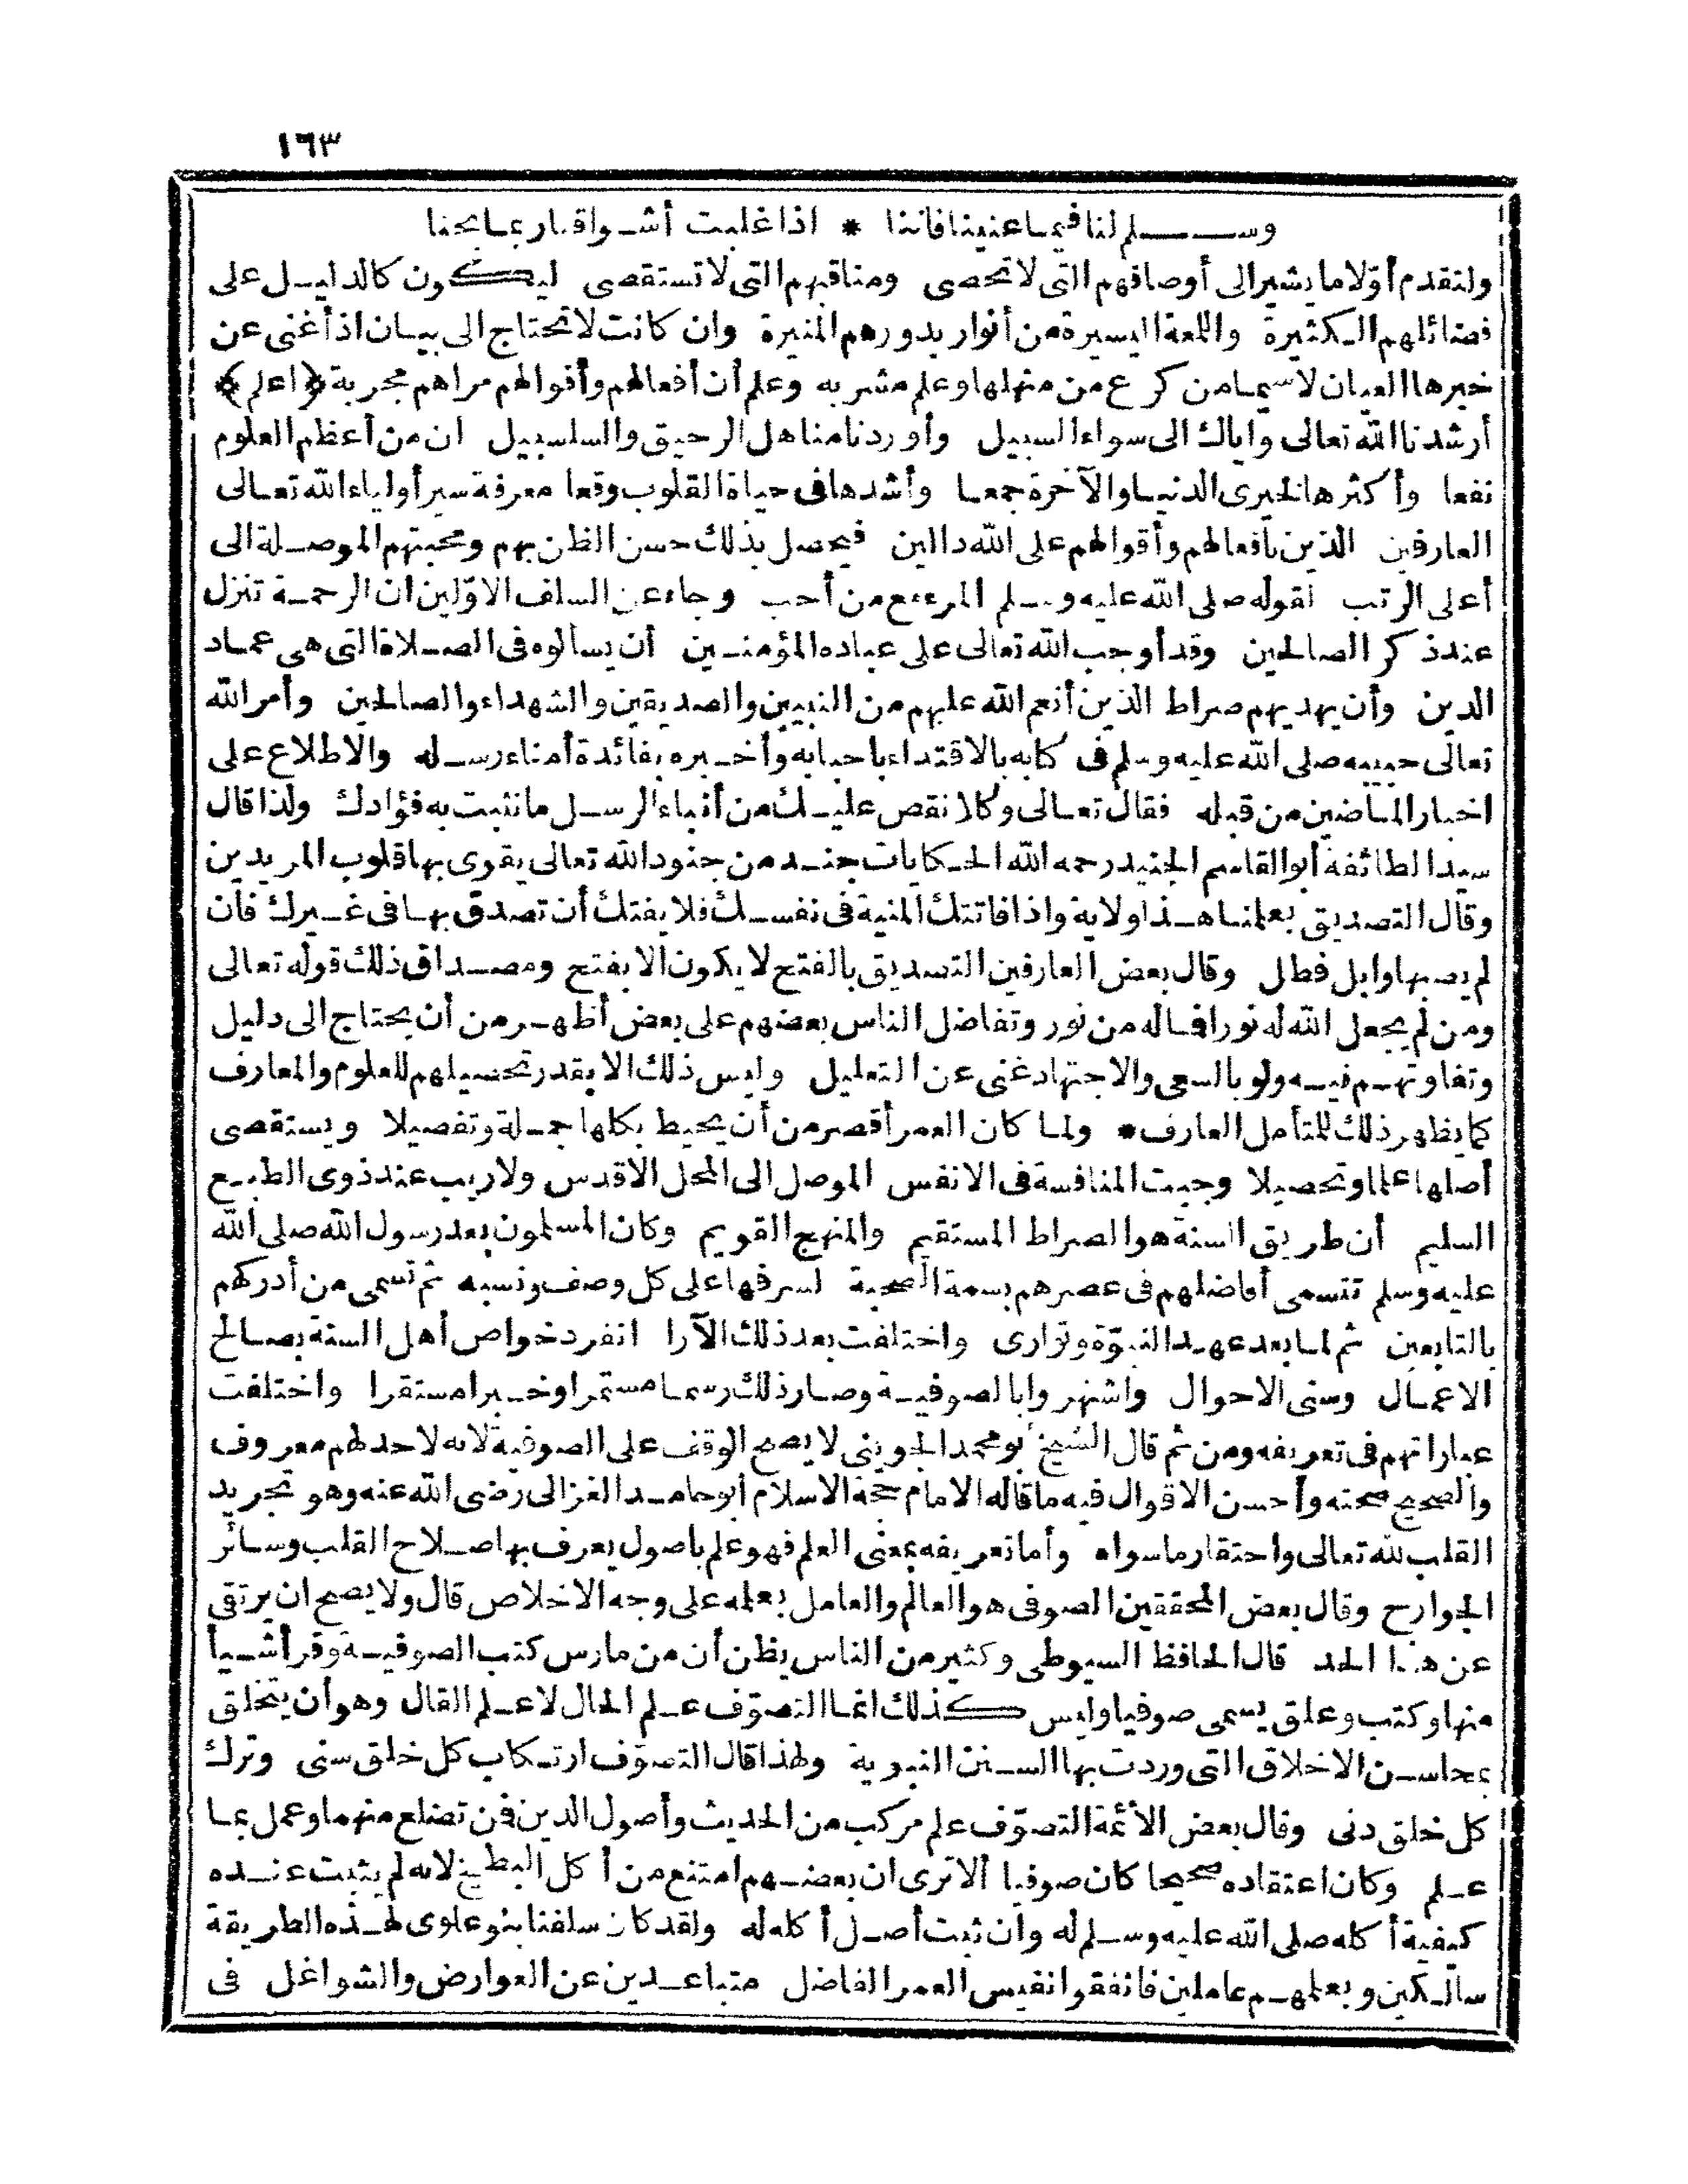 ١٦٣
وســلم لنا فيما عنينا فاننا * اذا غلبت أشــواقنا ربما بحنا
ولنقدم أوّلا ما يشير الى أوصافهم التى لا تحصى ومناقبهم التى لا تستقصى ليكون كالدليل على
فضائلهم الكثيرة واللعة اليسيرة من أنوار بدورهم المنيرة وان كانت لا تحتاج الى بيان اذ أغنى عن
خبرها العيان لا سيما من كرع من منهلها وعلم مشربه وعلم أن أفعالهم وأقوالهم مراهم مجربة ﴿اعلم﴾
أرشدنا الله تعالى واياك الى سواء السبيل وأوردنا مناهل الرحيق والسلسبيل ان من أعظم العلوم
نفعا وأكثرها لخيرى الدنيا والآخرة جمعا وأشدها فى حياة القلوب وقعا معرفة سير أولياء الله تعالى
العارفين الذين بأفعالهم وأقوالهم على الله دالين فيحصل بذلك حسن الظن بهم ومحبتهم الموصلة الى
أعلى الرتب لقوله صلى الله عليه وسلم المرء مع من أحب وجاء عن السلف الاوّلين ان الرحمة تنزل
عند ذكر الصالحين وقد أوجب الله تعالى على عباده المؤمنين أن يسألوه فى الصلاة التى هى عماد
الدين وأن يهديهم صراط الذين أنعم الله عليهم من النبيين والصديقين والشهداء والصالحين وأمر الله
تعالى حبيبه صلى الله عليه وسلم فى كتابه بالاقتداء باحبابه وأخبره بفائدة أمناء رسله والاطلاع على
اخبار الماضين من قبله فقال تعالى وكلا نقص عليك من أنباء الرسل ما نثبت به فؤادك ولذا قال
سيد الطائفة أبو القاسم الجنيد رحمه الله الحكايات جند من جنود الله تعالى يقوى بها قلوب المريدين
وقال التصديق بعلمنا هذا ولاية واذا فاتتك المنية فى نفسك فلا يفتك أن تصدق بها فى غيرك فان
لم يصبها وابل فطل وقال بعض العارفين التصديق بالفتح لا يكون الا بفتح ومصداق ذلك قوله تعالى
ومن لم يجعل الله له نورا فماله من نور وتفاضل الناس بعضهم على بعض أظهر من أن يحتاج الى دليل
وتفاوتهم فيه ولو بالسعى والاجتهاد غنى عن التعليل وليس ذلك الا بقدر تحصيلهم للعلوم والمعارف
كما يظهر ذلك للتأمل العارف * ولما كان العمر أقصر من أن يحيط بكلها جملة وتفصيلا ويستقصى
أصلها علما وتحصيلا وجبت المنافسة فى الانفس الموصل الى المحل الاقدس ولا ريب عند ذوى الطبع
السليم أن طريق السنة هو الصراط المستقيم والمنهج القويم وكان المسلمون بعد رسول الله صلى الله
عليه وسلم تتسمى أفاضلهم فى عصرهم بسمة الصحبة لشرفها على كل وصف ونسبه ثم تسمى من أدركهم
بالتابعين ثم لما بعد عهد النبوّة وتوارى واختلفت بعد ذلك الآرا انفرد خواص أهل السنة بصالح
الاعمال وسنى الاحوال واشتهروا بالصوفية وصار ذلك رسما مستمرا وخبرا مستقرا واختلفت
عباراتهم فى تعريفه ومن ثم قال الشيخ أبو محمد الجوينى لا يصح الوقف على الصوفية لانه لا حد لهم معروف
والصحيح صحته وأحسن الاقوال فيه ما قاله الامام حجة الاسلام أبو حامد الغزالى رضى الله عنه وهو تجريد
القلب لله تعالى واحتقار ما سواه وأما تعريفه بمعنى العلم فهو علم باصول يعرف بها صلاح القلب وسائر
الجوارح وقال بعض المحققين الصوفى هو العالم والعامل بعلمه على وجه الاخلاص قال ولا يصح ان يرتقى
عن هذا الحد قال الحافظ السيوطى وكثير من الناس يظن أن من مارس كتب الصوفية وقرأ شيأ
منها وكتب وعلق يسمى صوفيا وليس كذلك انما التصوّف علم الحال لا علم القال وهو أن يتخلق
بمحاسن الاخلاق التى وردت بها السنن النبوية ولهذا قال التصوّف ارتكاب كل خلق سنى وترك
كل خلق دنى وقال بعض الأئمة التصوّف علم مركب من الحديث وأصول الدين فمن تضلع منهما وعمل بما
علم وكان اعتقاده صحيحا كان صوفيا ألا ترى ان بعضهم امتنع من أكل البطيخ لانه لم يثبت عنده
كيفية أكله صلى الله عليه وسلم له وان ثبت أصل أكله له ولقد كان سلفنا بنو علوى لهذه الطريقة
سالكين وبعلمهم عاملين فانفقوا نفيس العمر الفاضل متباعدين عن العوارض والشواغل فى